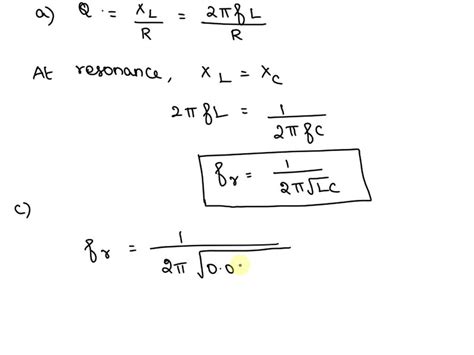 a) Q = X_L / R = 2πfL / R
At resonance, X_L = X_C
2πfL = 1 / 2πfC
f_r = 1 / 2π√LC
c)
f_r = 1 / 2π√0.0